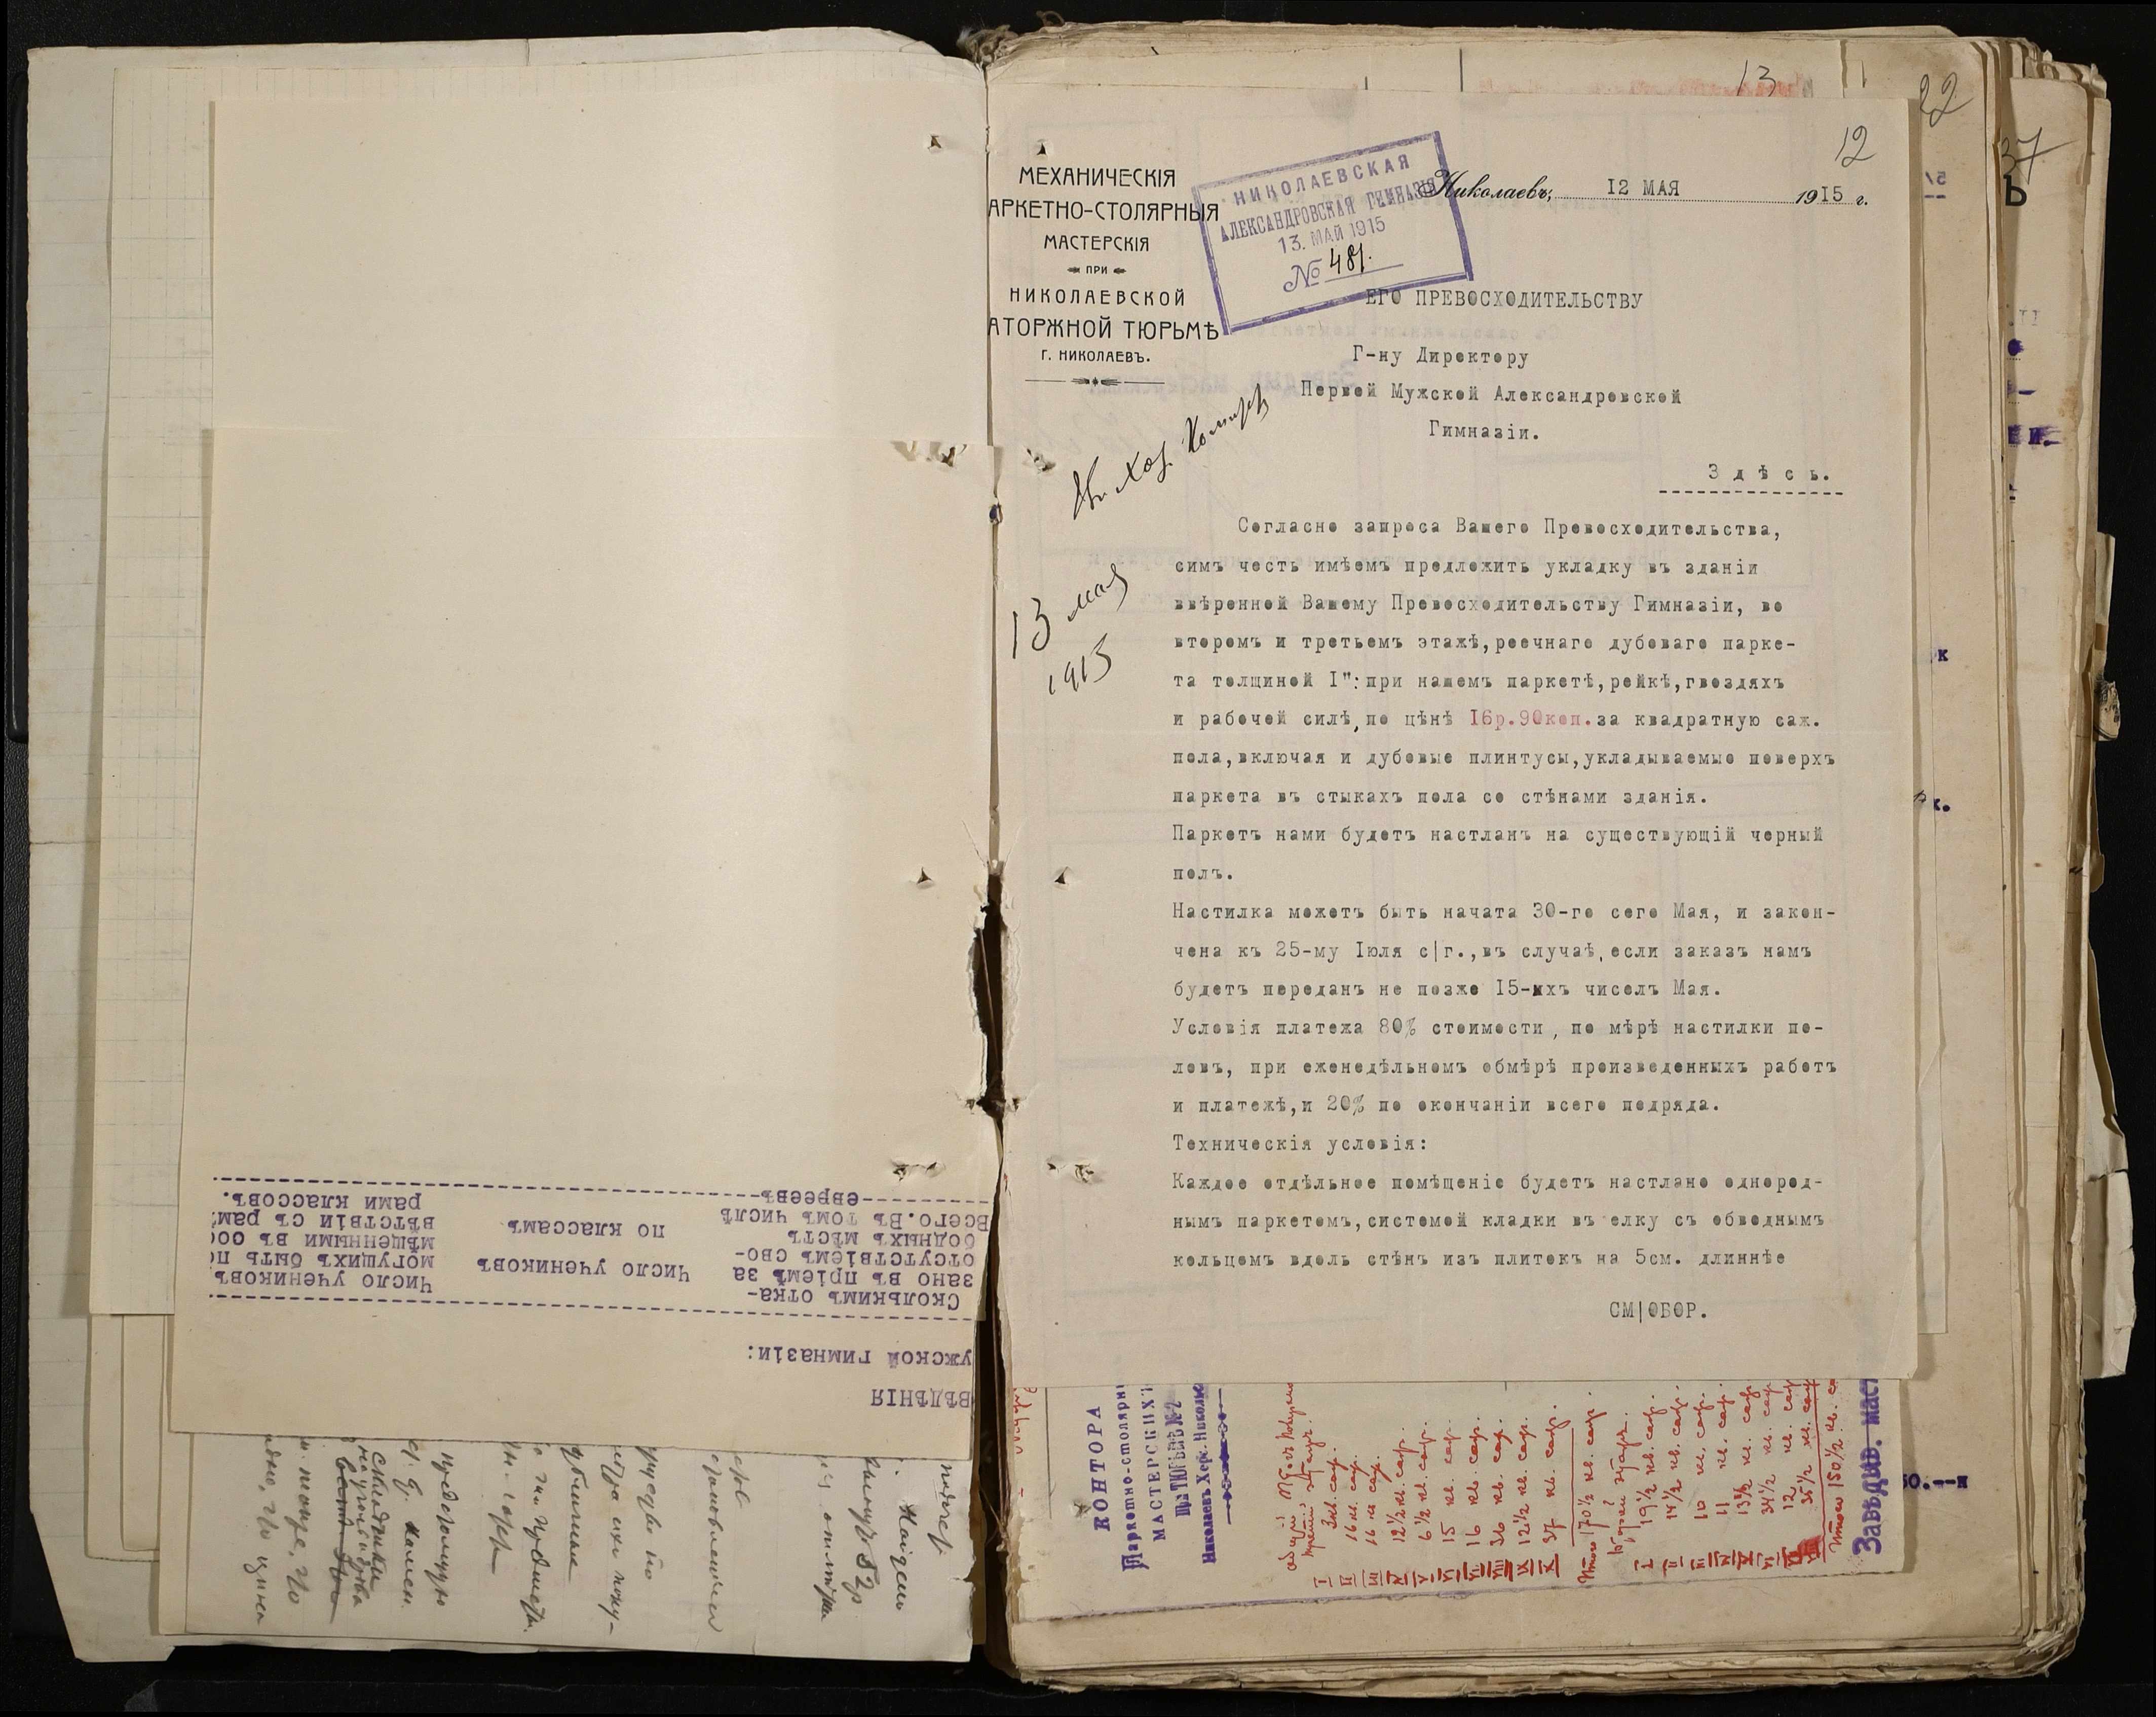 13
22
12
37
МЕХАНИЧЕСКІЯ
АРКЕТНО-СТОЛЯРНЫЯ
МАСТЕРСКІЯ
ПРИ
НИКОЛАЕВСКОЙ
АТОРЖНОЙ ТЮРЬМѢ
Г. НИКОЛАЕВЪ.
НИКОЛАЕВСКАЯ
АЛЕКСАНДРОВСКАЯ ГИМНАЗІЯ
13. МАЙ 1915
№ 481.
Николаевъ, I2 МАЯ 19I5 г.
ЕГО ПРЕВОСХОДИТЕЛЬСТВУ
Г-ну Директору
Первой Мужской Александровской
Гимназіи.
Здѣсь.
13 мая
1915
Согласно запроса Вашего Превосходительства,
симъ честь имѣемъ предложить укладку въ зданіи
ввѣренной Вашему Превосходительству Гимназіи, во
второмъ и третьемъ этажѣ,реечнаго дубоваго парке-
та толщиной I":при нашемъ паркетѣ,рейкѣ,гвоздяхъ
и рабочей силѣ,по цѣнѣ I6р.90коп.за квадратную саж.
пола,включая и дубовые плинтусы,укладываемые поверхъ
паркета въ стыкахъ пола со стѣнами зданія.
Паркетъ нами будетъ настланъ на существующій черный
полъ.
Настилка можетъ быть начата 30-го сего Мая, и закон-
чена къ 25-му Іюля с|г.,въ случаѣ,если заказъ намъ
будетъ переданъ не позже I5-ыхъ чиселъ Мая.
Условія платежа 80% стоимости, по мѣрѣ настилки по-
ловъ, при еженедѣльномъ обмѣрѣ произведенныхъ работъ
и платежѣ,и 20% по окончаніи всего подряда.
Техническія условія:
Каждое отдѣльное помѣщеніе будетъ настлано однород-
нымъ паркетомъ,системой кладки въ елку съ обводнымъ
кольцомъ вдоль стѣнъ изъ плитокъ на 5см. длиннѣе
СМ|ОБОР.
ВѢДѢНІЯ
ужской гимназіи:
Сколькимъ отка-
зано въ пріемѣ за
отсутствіемъ сво-
бодныхъ мѣстъ
Всего.Въ томъ числѣ
евреевъ
Число учениковъ
по классамъ
Число учениковъ
могущихъ быть п
мѣщенными въ соо
вѣтствіи съ рам
рами классовъ.
КОНТОРА
Паркетно-столярн
МАСТЕРСКИХЪ
Николаевъ Херс.
I 3 кв. саж.
II 16 кв. саж.
III 16 кв саж.
IV 12½ кв. саж.
V 6½ кв. саж.
VI 15 кв. саж.
VII 16 кв. саж.
VIII 36 кв. саж.
IX 12½ кв. саж.
X 37 кв. саж.
Итого 170½ кв. саж.
I 19½ кв. саж.
II 14½ кв. саж.
III 10 кв. саж.
IV 11 кв. саж.
V 13½ кв. саж
VI 34½ кв. саж
VII 12 кв. саж
VIII 35½ кв. саж
Итого 150½ кв. са
Завѣдыв. маст